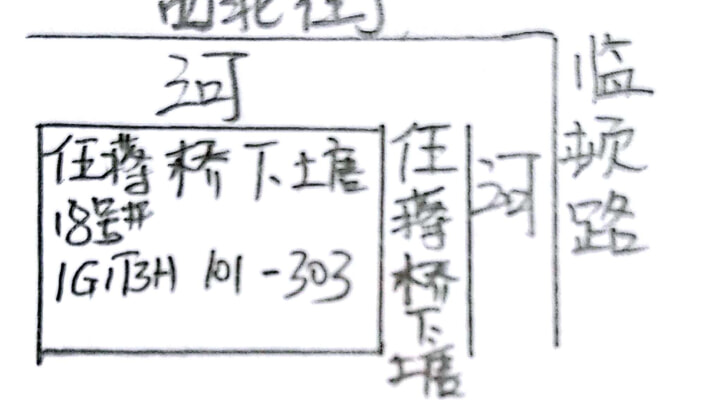 河
任蒋桥下塘
18号#
1G1T3H 101-303
任蒋桥下塘
河
临顿路